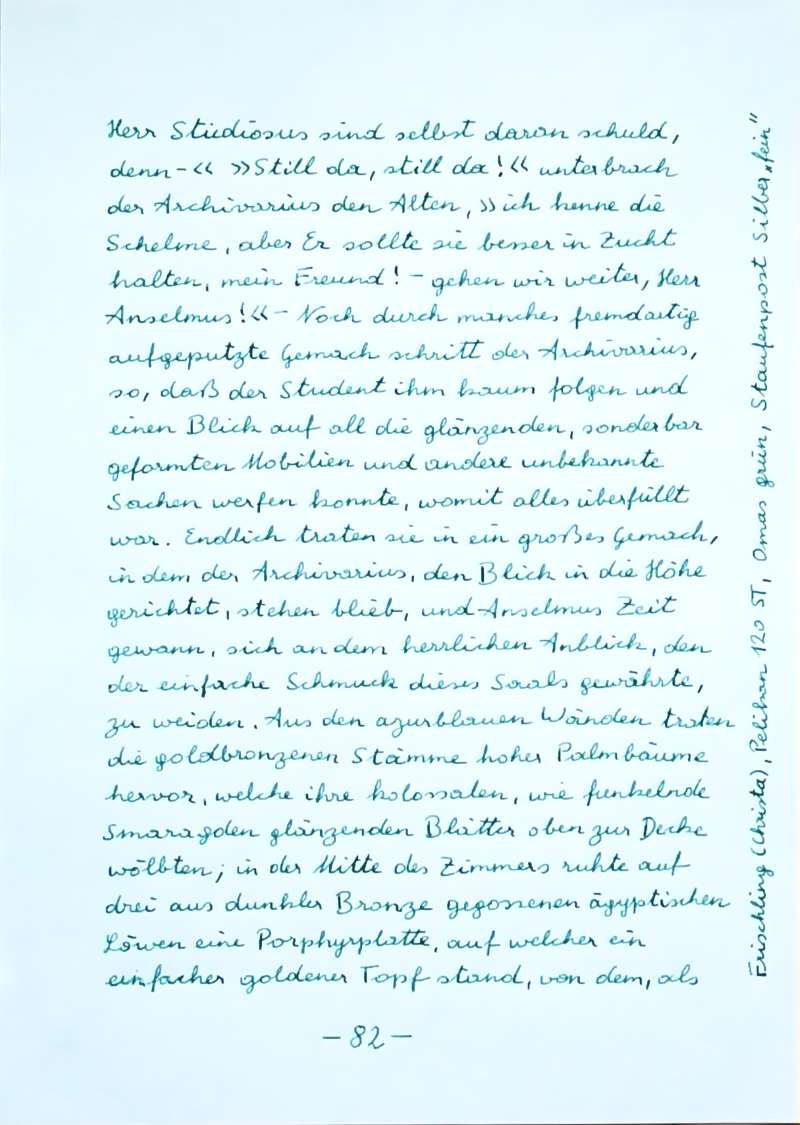 Herr Studiosus sind selbst daran schuld,
denn – « »Still da, still da!« unterbrach
der Archivarius den Alten, »ich kenne die
Schelme, aber Er sollte sie besser in Zucht
halten, mein Freund! – gehen wir weiter, Herr
Anselmus!« – Noch durch manches fremdartig
aufgeputzte Gemach schritt der Archivarius,
so, daß der Student ihm kaum folgen und
einen Blick auf all die glänzenden, sonderbar
geformten Mobilien und andere unbekannte
Sachen werfen konnte, womit alles überfüllt
war. Endlich traten sie in ein großes Gemach,
in dem der Archivarius, den Blick in die Höhe
gerichtet, stehen blieb, und Anselmus Zeit
gewann, sich an dem herrlichen Anblick, den
der einfache Schmuck dieses Saals gewährte,
zu weiden. Aus den azurblauen Wänden traten
die goldbronzenen Stämme hoher Palmbäume
hervor, welche ihre kolossalen, wie funkelnde
Smaragden glänzenden Blätter oben zur Decke
wölbten; in der Mitte des Zimmers ruhte auf
drei aus dunkler Bronze gegossenen ägyptischen
Löwen eine Porphyrplatte, auf welcher ein
einfacher goldener Topf stand, von dem, als
– 82 –
Frischling (Christa), Pelikan 120 ST, Omas grün, Staufenpost Silber „fein"